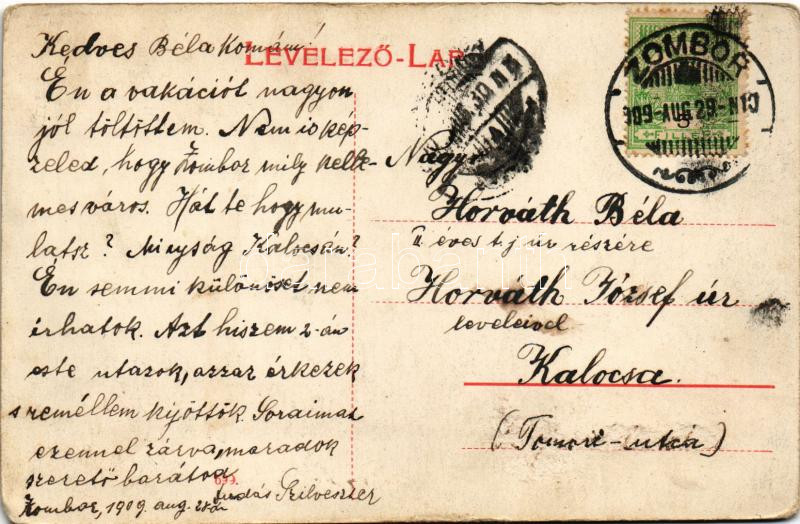 Kedves Béla Komám!
LEVELEZŐ-LAP
Én a vakációt nagyon
jól töltöttem. Nem is kép-
zeled, hogy Zombor mily kelle-
mes város. Hát te hogy mu-
latsz? Mi ujság Kalocsán?
Én semmi különöset nem
irhatok. Azt hiszem 2-án
este utazok, azzal érkezek
s reméllem kijöttök. Soraimat
ezennel zárva, maradok
szerető barátod
Szilveszter
Zombor, 1909. aug. 28-án
693.
ZOMBOR
909 AUG 28
FILLÉR
Nagys.
Horváth Béla
II éves t j úr részére
Horváth József úr
leveleivel
Kalocsa.
(Tomori-utca)